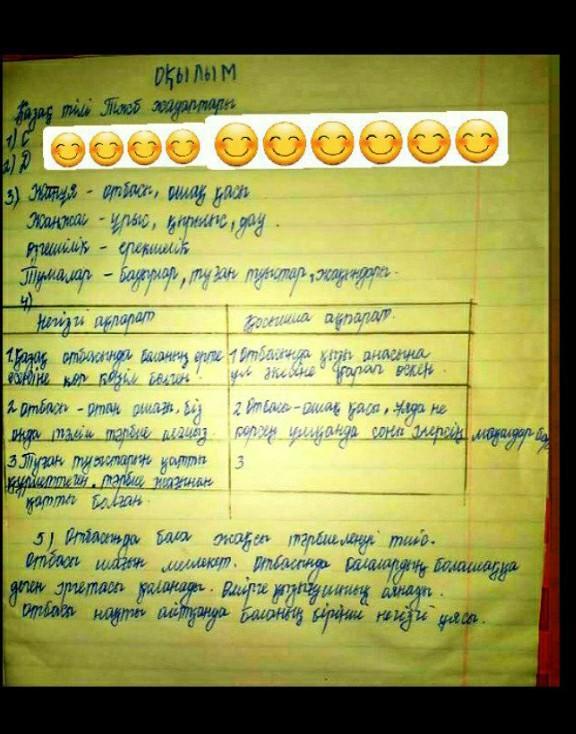 ОҚЫЛЫМ
Қазақ тілі Тжб жауаптары
1) С
2) Д
3) Жанұя - отбасы, ошақ қасы
Жанжал - ұрыс, қырылыс, дау.
өзгешілік - ерекшелік
Тумалар - бауырлар, туған туыстар, жақындары.
4)
Негізгі ақпарат
Қосымша ақпарат.
1. Қазақ отбасында баланың ерте
көп көңіл бөлген.
1 Отбасында қызы анасына
ұл әкесіне қарап өскен.
2 отбасы - отан ошағы, біз
онда тәлім тәрбие аламыз.
2 Отбасы - ошақ қасы, Ұяда не
көрсең ұшқанда соны ілерсің мақалдар бар
3. Туған туыстарын қатты
құрметтеген, тәрбие жағынан
қатты болған.
3
5) Отбасында бала жақсы тәрбиеленуі тиіс.
Отбасы шағын мемлекет. Отбасында балалардың болашаққа
деген іргетасы қаланады. Өмірге қызығушылық оянады.
Отбасы нақты айтқанда баланың бірінші негізгі ұясы.